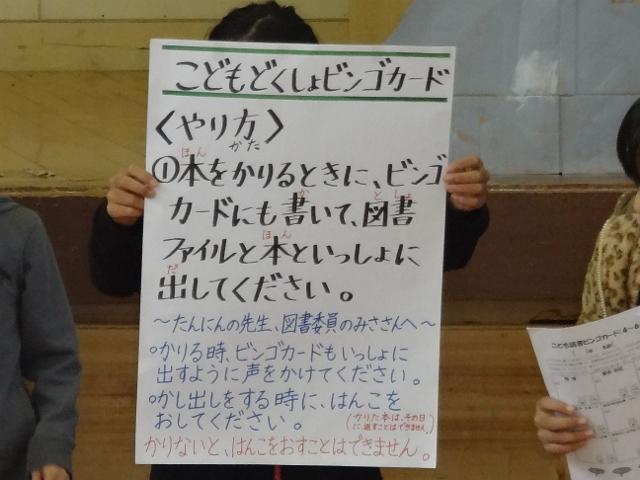 こどもどくしょビンゴカード
〈やり方〉
かた
①本をかりるときに、ビンゴ
ほん
カードにも書いて、図書
か としょ
ファイルと本といっしょに
ほん
出してください。
だ
〜たんにんの先生、図書委員のみさんへ〜
○かりる時、ビンゴカードもいっしょに
出すように声をかけてください。
○かし出しをする時に、はんこを
おしてください。
(かりた本は、その日
に、返すことはできません。)
かりないと、はんこをおすことはできません。
こども読書ビンゴカード(4〜6